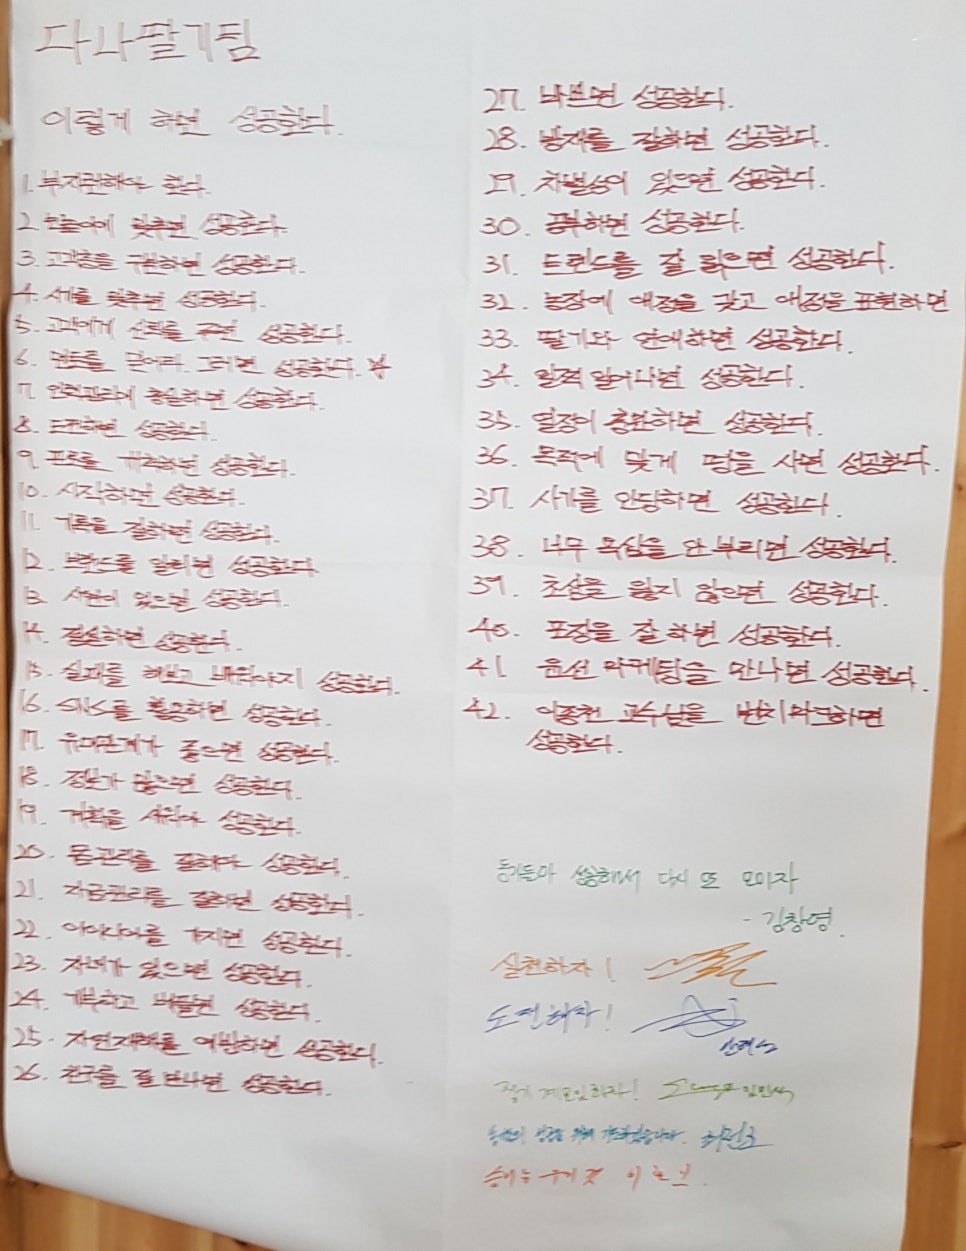 다나딸기팀
이렇게 하면 성공한다.
1. 부지런해야 한다.
2. 눈높이에 맞추면 성공한다.
3. 고객층을 구분하면 성공한다.
4. 시세를 맞추면 성공한다.
5. 고객에게 신뢰를 주면 성공한다.
6. 멘토를 믿어라. 그러면 성공한다.
7. 인력관리에 충실하면 성공한다.
8. 도전하면 성공한다.
9. 성공한다.
10. 시작하면 성공한다.
11. 기록을 잘하면 성공한다.
12. 브랜드를 알리면 성공한다.
13. 있으면 성공한다.
14. 절실하면 성공한다.
15. 실패를 해보고 성공한다.
16. SNS를 활용하면 성공한다.
17. 유대관계가 좋으면 성공한다.
18. 정보가 많으면 성공한다.
19. 계획을 세워야 성공한다.
20. 몸관리를 잘해야 성공한다.
21. 자금관리를 잘하면 성공한다.
22. 아이디어를 가지면 성공한다.
23. 자녀가 있으면 성공한다.
24. 기부하고 베풀면 성공한다.
25. 자연재해를 예방하면 성공한다.
26. 친구를 잘 만나면 성공한다.
27. 나쁘면 성공한다.
28. 방제를 잘하면 성공한다.
29. 차별성이 있으면 성공한다.
30. 공부하면 성공한다.
31. 트렌드를 잘 읽으면 성공한다.
32. 농장에 애정을 갖고 애정을 표현하면
33. 딸기와 연애하면 성공한다.
34. 일찍 일어나면 성공한다.
35. 열정이 충만하면 성공한다.
36. 목적에 맞게 땅을 사면 성공한다.
37. 사기를 안당하면 성공한다.
38. 너무 욕심을 안 부리면 성공한다.
39. 초심을 잃지 않으면 성공한다.
40. 포장을 잘하면 성공한다.
41. 윤선 마케팅을 만나면 성공한다.
42. 이종천 교수님을 벤치마크하면
성공한다.
동기들아 성공해서 다시 또 모이자
- 김창영.
실천하자!
도전하자!
정기 계모임하자!